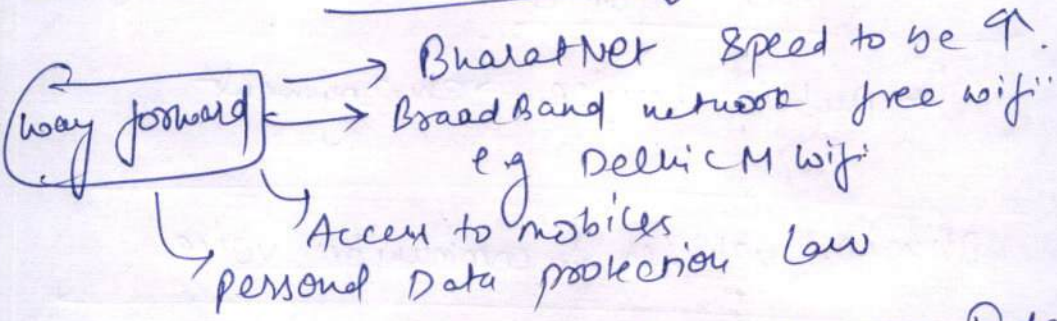 BharatNet Speed to be ↑.
way forward
BroadBand network free wifi
e.g Delhi CM wifi
Access to mobiles
personal Data protection Law